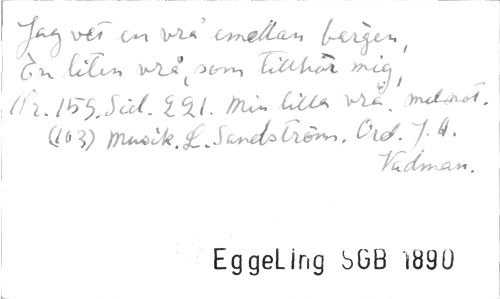 Jag vet en vrå emellan bergen,
En liten vrå, som tillhör mig,
Nr. 159. Sid. 221. Min lilla vrå. mel.not.
(103) Musik. L. Sandström. Ord. J. A.
Vadman.
EggeLing SGB 1890